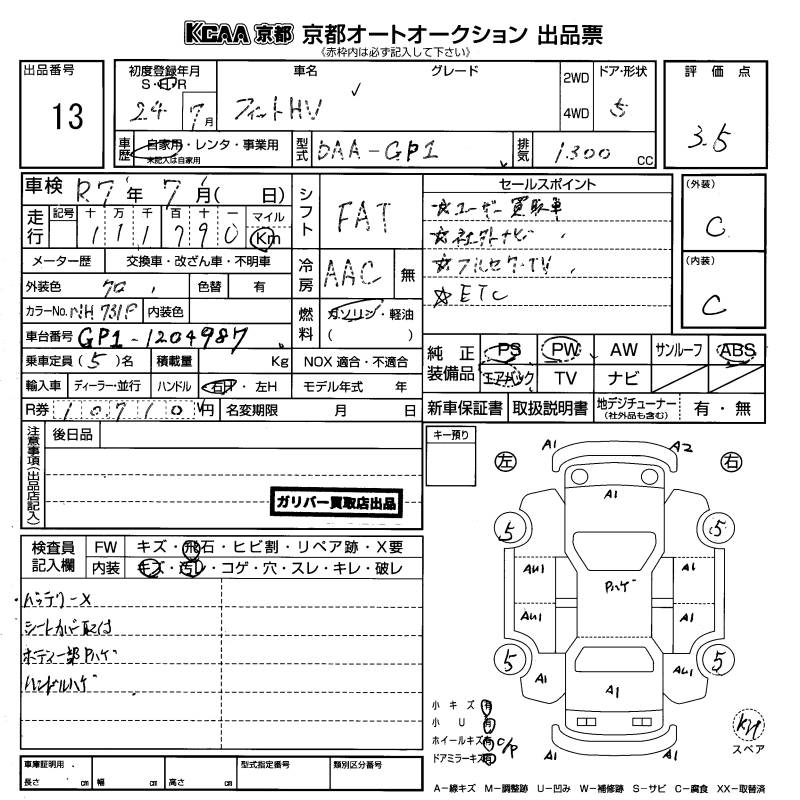 KCAA 京都 京都オートオークション 出品票
(赤枠内は必ず記入して下さい)
出品番号 13
初度登録年月 S・H・R 24 7月
車名 グレード フィットHV
2WD 4WD
ドア・形状 5
評価点 3.5
車歴 自家用・レンタ・事業用
未記入は自家用
型式 DAA-GP1
排気 1300 CC
車検 R7年 7月( 日)
シフト FAT
セールスポイント
☆ユーザー買取車
☆社外ナビ
☆フルセグTV
☆ETC
(外装) C
(内装) C
走行 記号 十 万 千 百 十 一 マイル Km
111790
メーター歴 交換車・改ざん車・不明車
冷房 AAC 無
外装色 色替 有
カラーNo. NH731P 内装色
燃料 ガソリン・軽油 ( )
車台番号 GP1-1204987
乗車定員(5)名 積載量 Kg NOX適合・不適合
輸入車 ディーラー・並行 ハンドル 右H・左H モデル年式 年
R券 10710円 名変期限 月 日
純正装備品 PS PW AW サンルーフ ABS
エアバック TV ナビ
新車保証書 取扱説明書 地デジチューナー(社外品も含む) 有・無
注意事項(出品店記入)
後日品
ガリバー買取店出品
キー預り
左 右
A1 A2
A1
5 5
AU1 A1
Pハゲ
AU1 A1
5 5
A1 A1 AU1
A1 A1
検査員記入欄
FW キズ・飛石・ヒビ割・リペア跡・X要
内装 キズ・汚れ・コゲ・穴・スレ・キレ・破レ
バッテリーX
シートカバー取付
ボディ一部Pハゲ
ハンドルハゲ
小キズ 有
小U 有
ホイールキズ 有 C/P
ドアミラーキズ 有
スペア
車庫証明用
長さ cm 幅 cm 高さ cm
型式指定番号 類別区分番号
A-線キズ M-調整跡 U-凹み W-補修跡 S-サビ C-腐食 XX-取替済